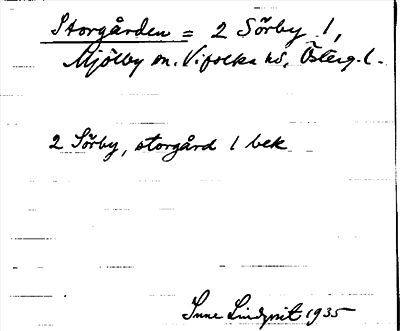 Storgården = 2 Sörby 1,
Mjölby sn. Vifolka hd, Österg. l.
2 Sörby, storgård 1 bek
Sune Lindqvist 1935